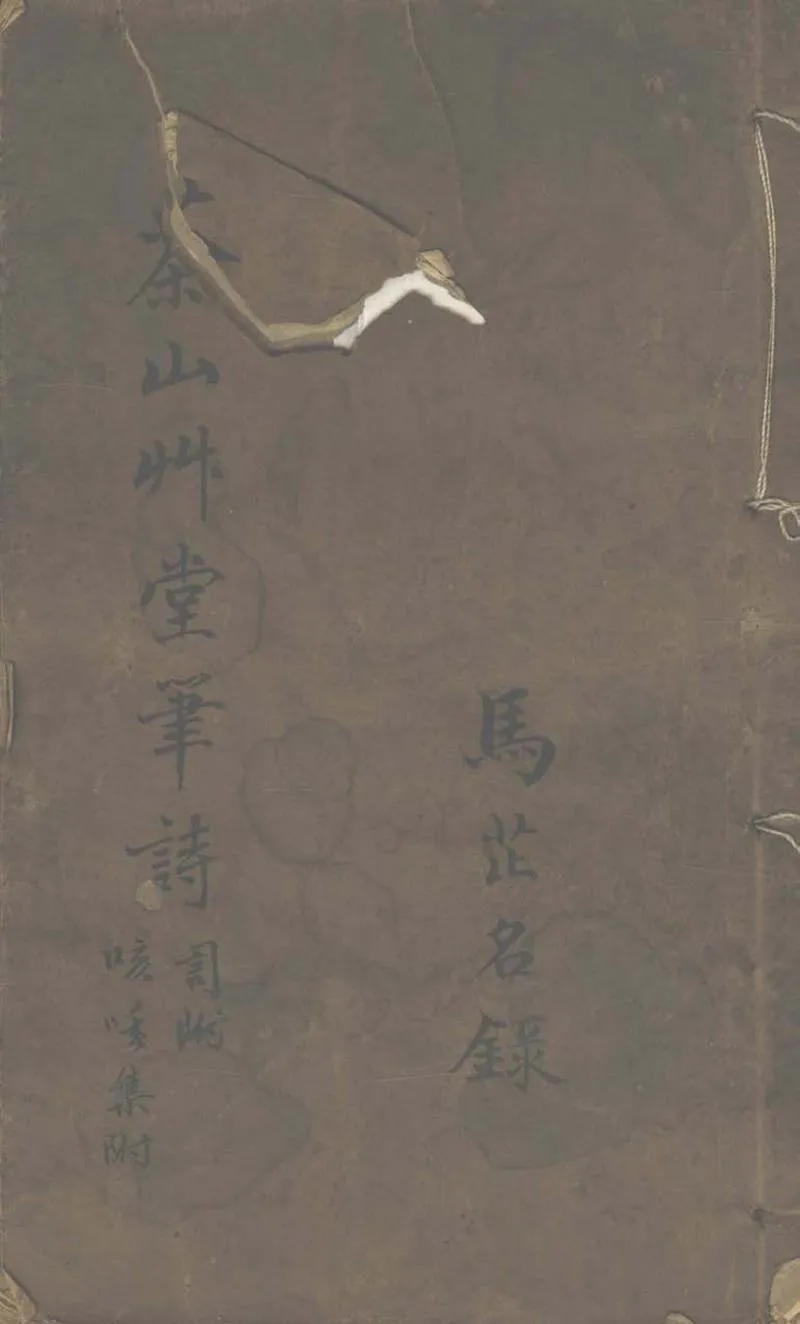 馬茫名錄
茶山艸堂筆詩
咳唾集附